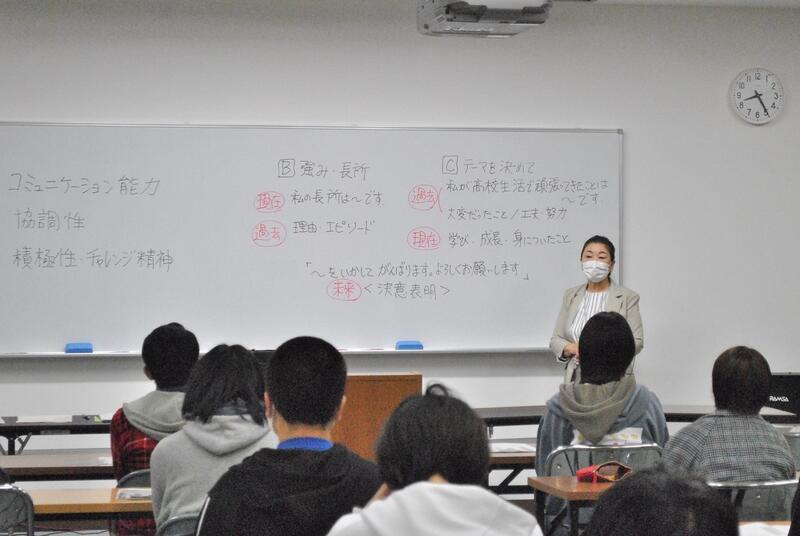 コミュニケーション能力
協調性
積極性・チャレンジ精神
B 強み・長所
現在 私の長所は〜です
過去 理由・エピソード
C テーマを決めて
過去 私が高校生活で頑張ってきたことは
〜です。
大変だったこと/工夫・努力
現在 学び・成長・身についたこと
「〜をいかしてがんばります。よろしくお願いします」
未来 <決意表明>
RAMSA